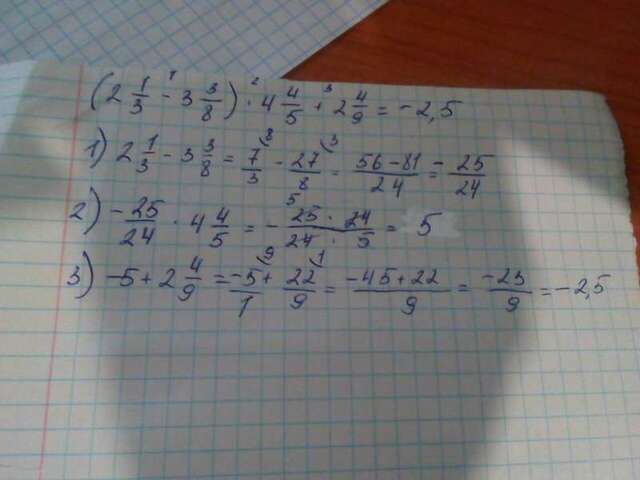 (2 1/3 - 3 3/8) · 4 4/5 + 2 4/9 = -2,5
1) 2 1/3 - 3 3/8 = 7/3 - 27/8 = (56 - 81)/24 = -25/24
2) -25/24 · 4 4/5 = - (25 · 24)/(24 · 5) = 5
3) -5 + 2 4/9 = -5/1 + 22/9 = (-45 + 22)/9 = -23/9 = -2,5